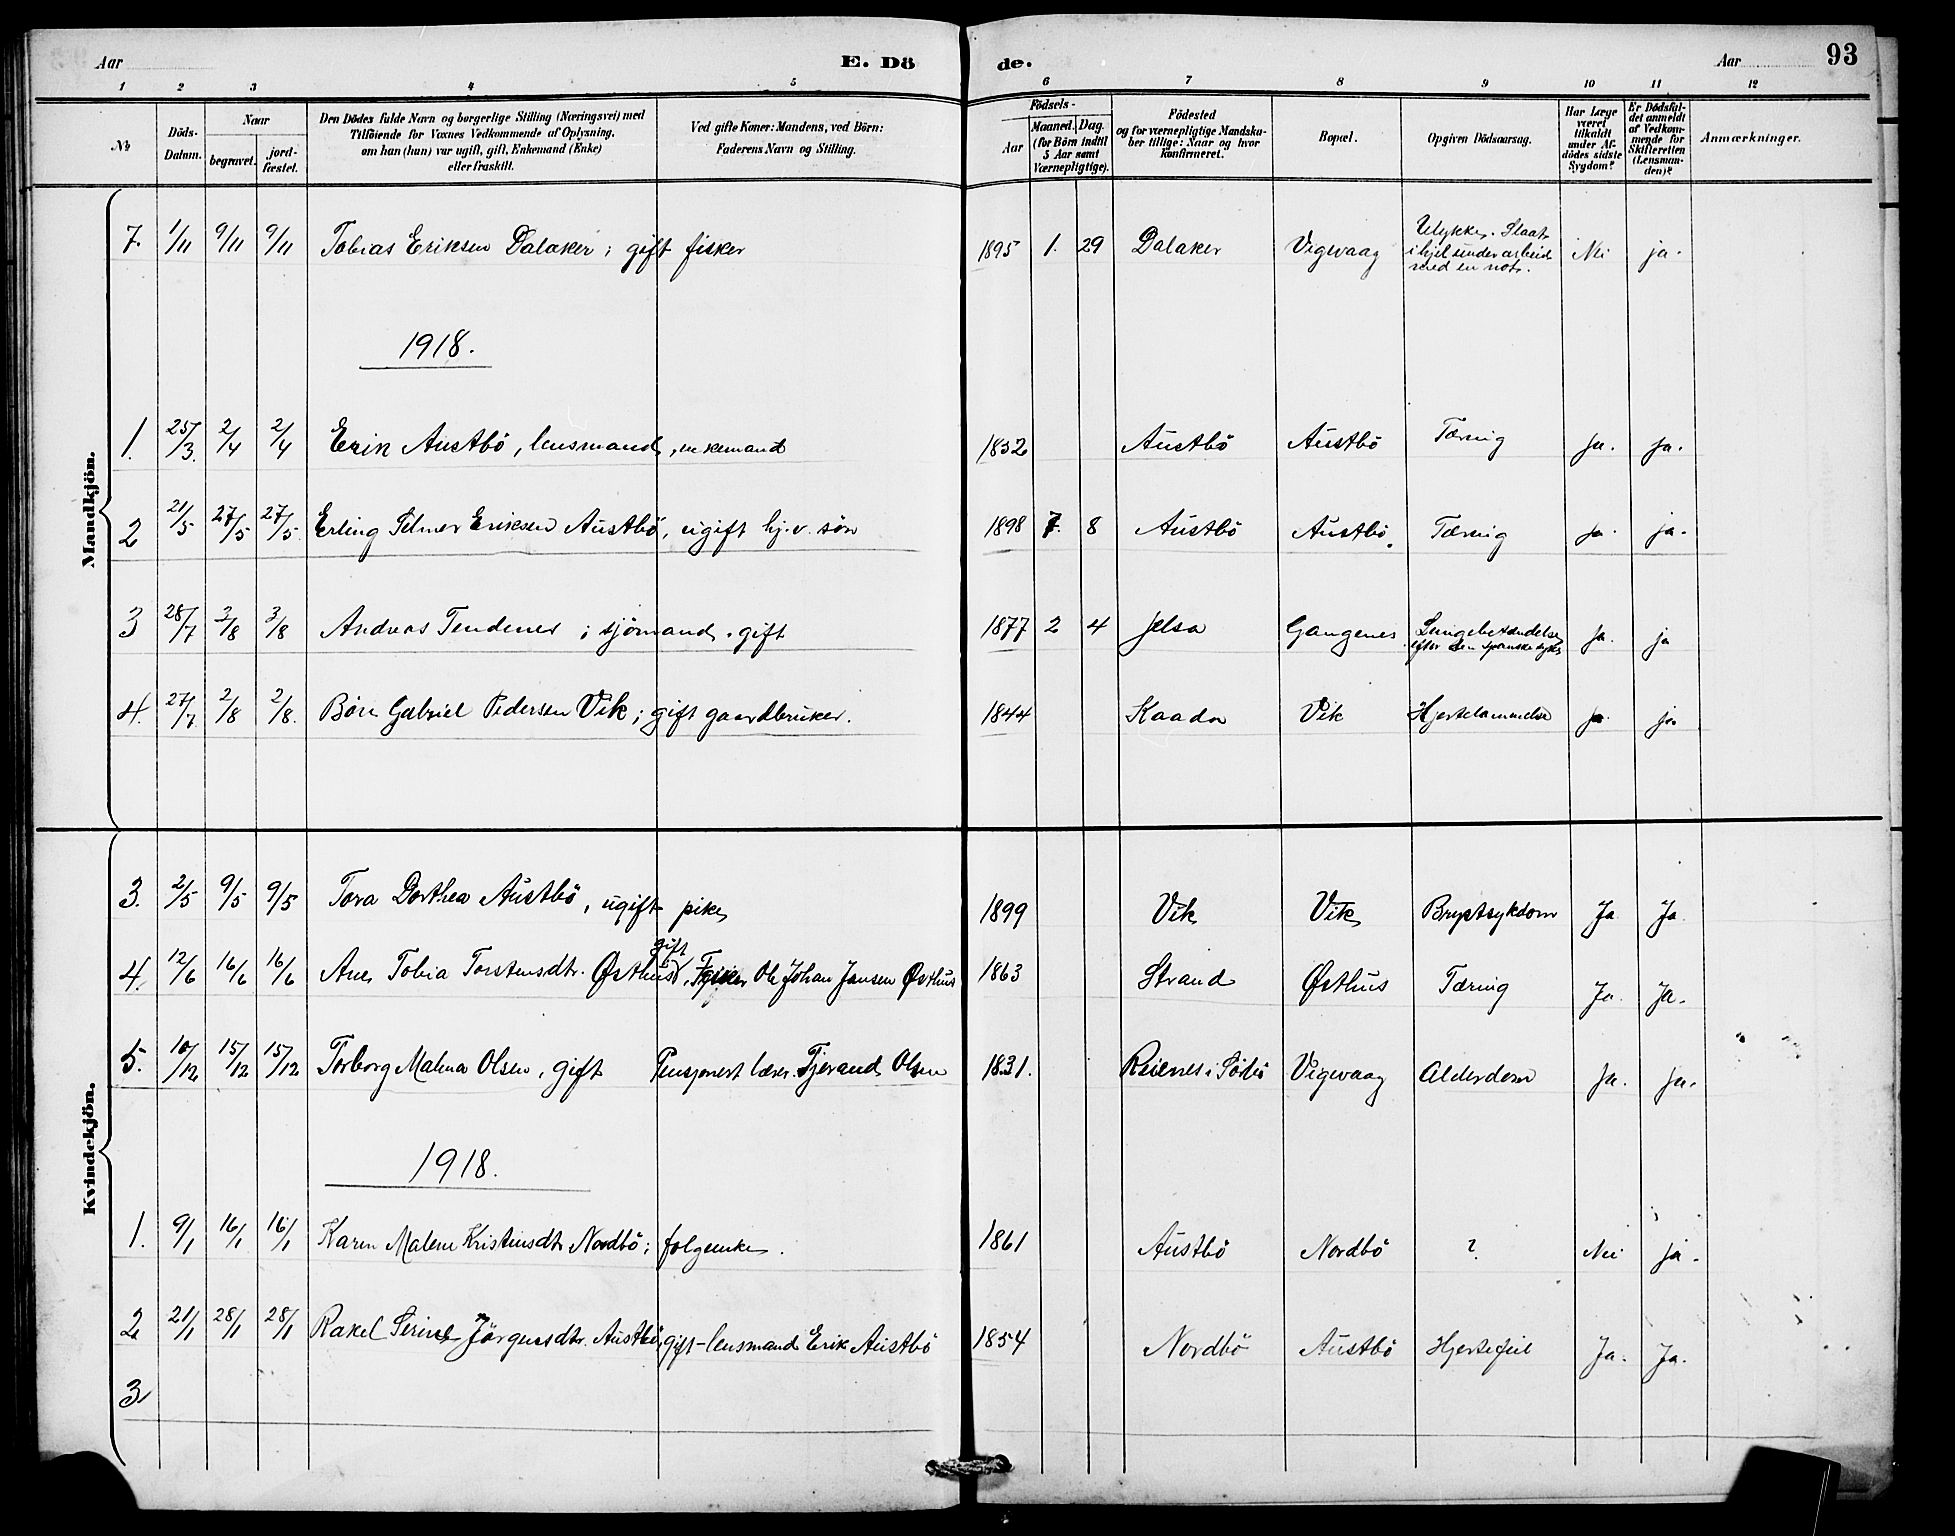 Aar
E. Dö
de.
Aar
93
1 2 3 4 5 6 7 8 9 10 11 12
No
Döds-
Datum.
Naar
begravet.
jord-
fæstet.
Den Dödes fulde Navn og borgerlige Stilling (Næringsvei) med
Tilföiende for Voxnes Vedkommende af Oplysning,
om han (hun) var ugift, gift, Enkemand (Enke)
eller fraskilt.
Ved gifte Koner: Mandens, ved Börn:
Faderens Navn og Stilling.
Födsels-
Aar
Maaned. Dag.
(for Börn indtil
5 Aar samt
Værnepligtige).
Födested
og for værnepligtige Mandska-
ber tillige: Naar og hvor
konfirmeret.
Bopæl.
Opgiven Dödsaarsag.
Har Læge
været
tilkaldt
under Af-
dödes sidste
Sygdom?
Er Dödsfal-
det anmeldt
af Vedkom-
mende for
Skifteretten
(Lensman-
den)?
Anmærkninger.
Mandkjön.
7. 1/11 9/11 9/11 Tobias Eriksen Dalaker; gift fisker 1895 1. 29 Dalaker Vigevaag Ulykke. Slaat
ihjel under arbeide
med en not. Nei ja.
1918.
1. 25/3. 2/4 2/4 Erik Austbö, lensmand, enkemand 1852 Austbö Austbö Tæring Ja. ja.
2 21/5 27/5 27/5 Erling Selmer Eriksen Austbö, ugift hj.v. sön 1898 7. 8 Austbö Austbö. Tæring ja. ja.
3 28/7 3/8 3/8 Andreas Tendenes; sjömand. gift 1877 2 4 Jelsa Gangenes Lungebetændelse
efter den spanske syke Ja. ja
4. 27/7 2/8 2/8. Böre Gabriel Pedersen Vik; gift gaardbruker. 1844 Kaada Vik Hjertelammelse ja ja
Kvindekjön.
3. 2/5 9/5 9/5 Tora Dorthea Austbö, ugift pike 1899 Vik Vik Brystsykdom Ja Ja
gift
4. 12/6 16/6 16/6 Ane Tobia Torstensdtr. Østhus, Fisker Ole Johan Jansen Østhus 1863 Strand Østhus Tæring Ja. Ja.
5. 10/12 15/12 15/12 Torborg Malena Olsen, gift Pensjonert lærer Tjerand Olsen 1831. Reienes i Sörbö Vigevaag Alderdom Ja. ja.
1918.
1. 9/1 16/1 16/1 Karen Malene Kristensdtr Nordbö; folgeenke. 1861 Austbö Nordbö ? Nei ja.
2 21/1 28/1 28/1 Rakel Serine Jörgensdtr. Austbö, gift - lensmand Erik Austbö 1854 Nordbö Austbö Hjertefeil Ja. Ja.
3